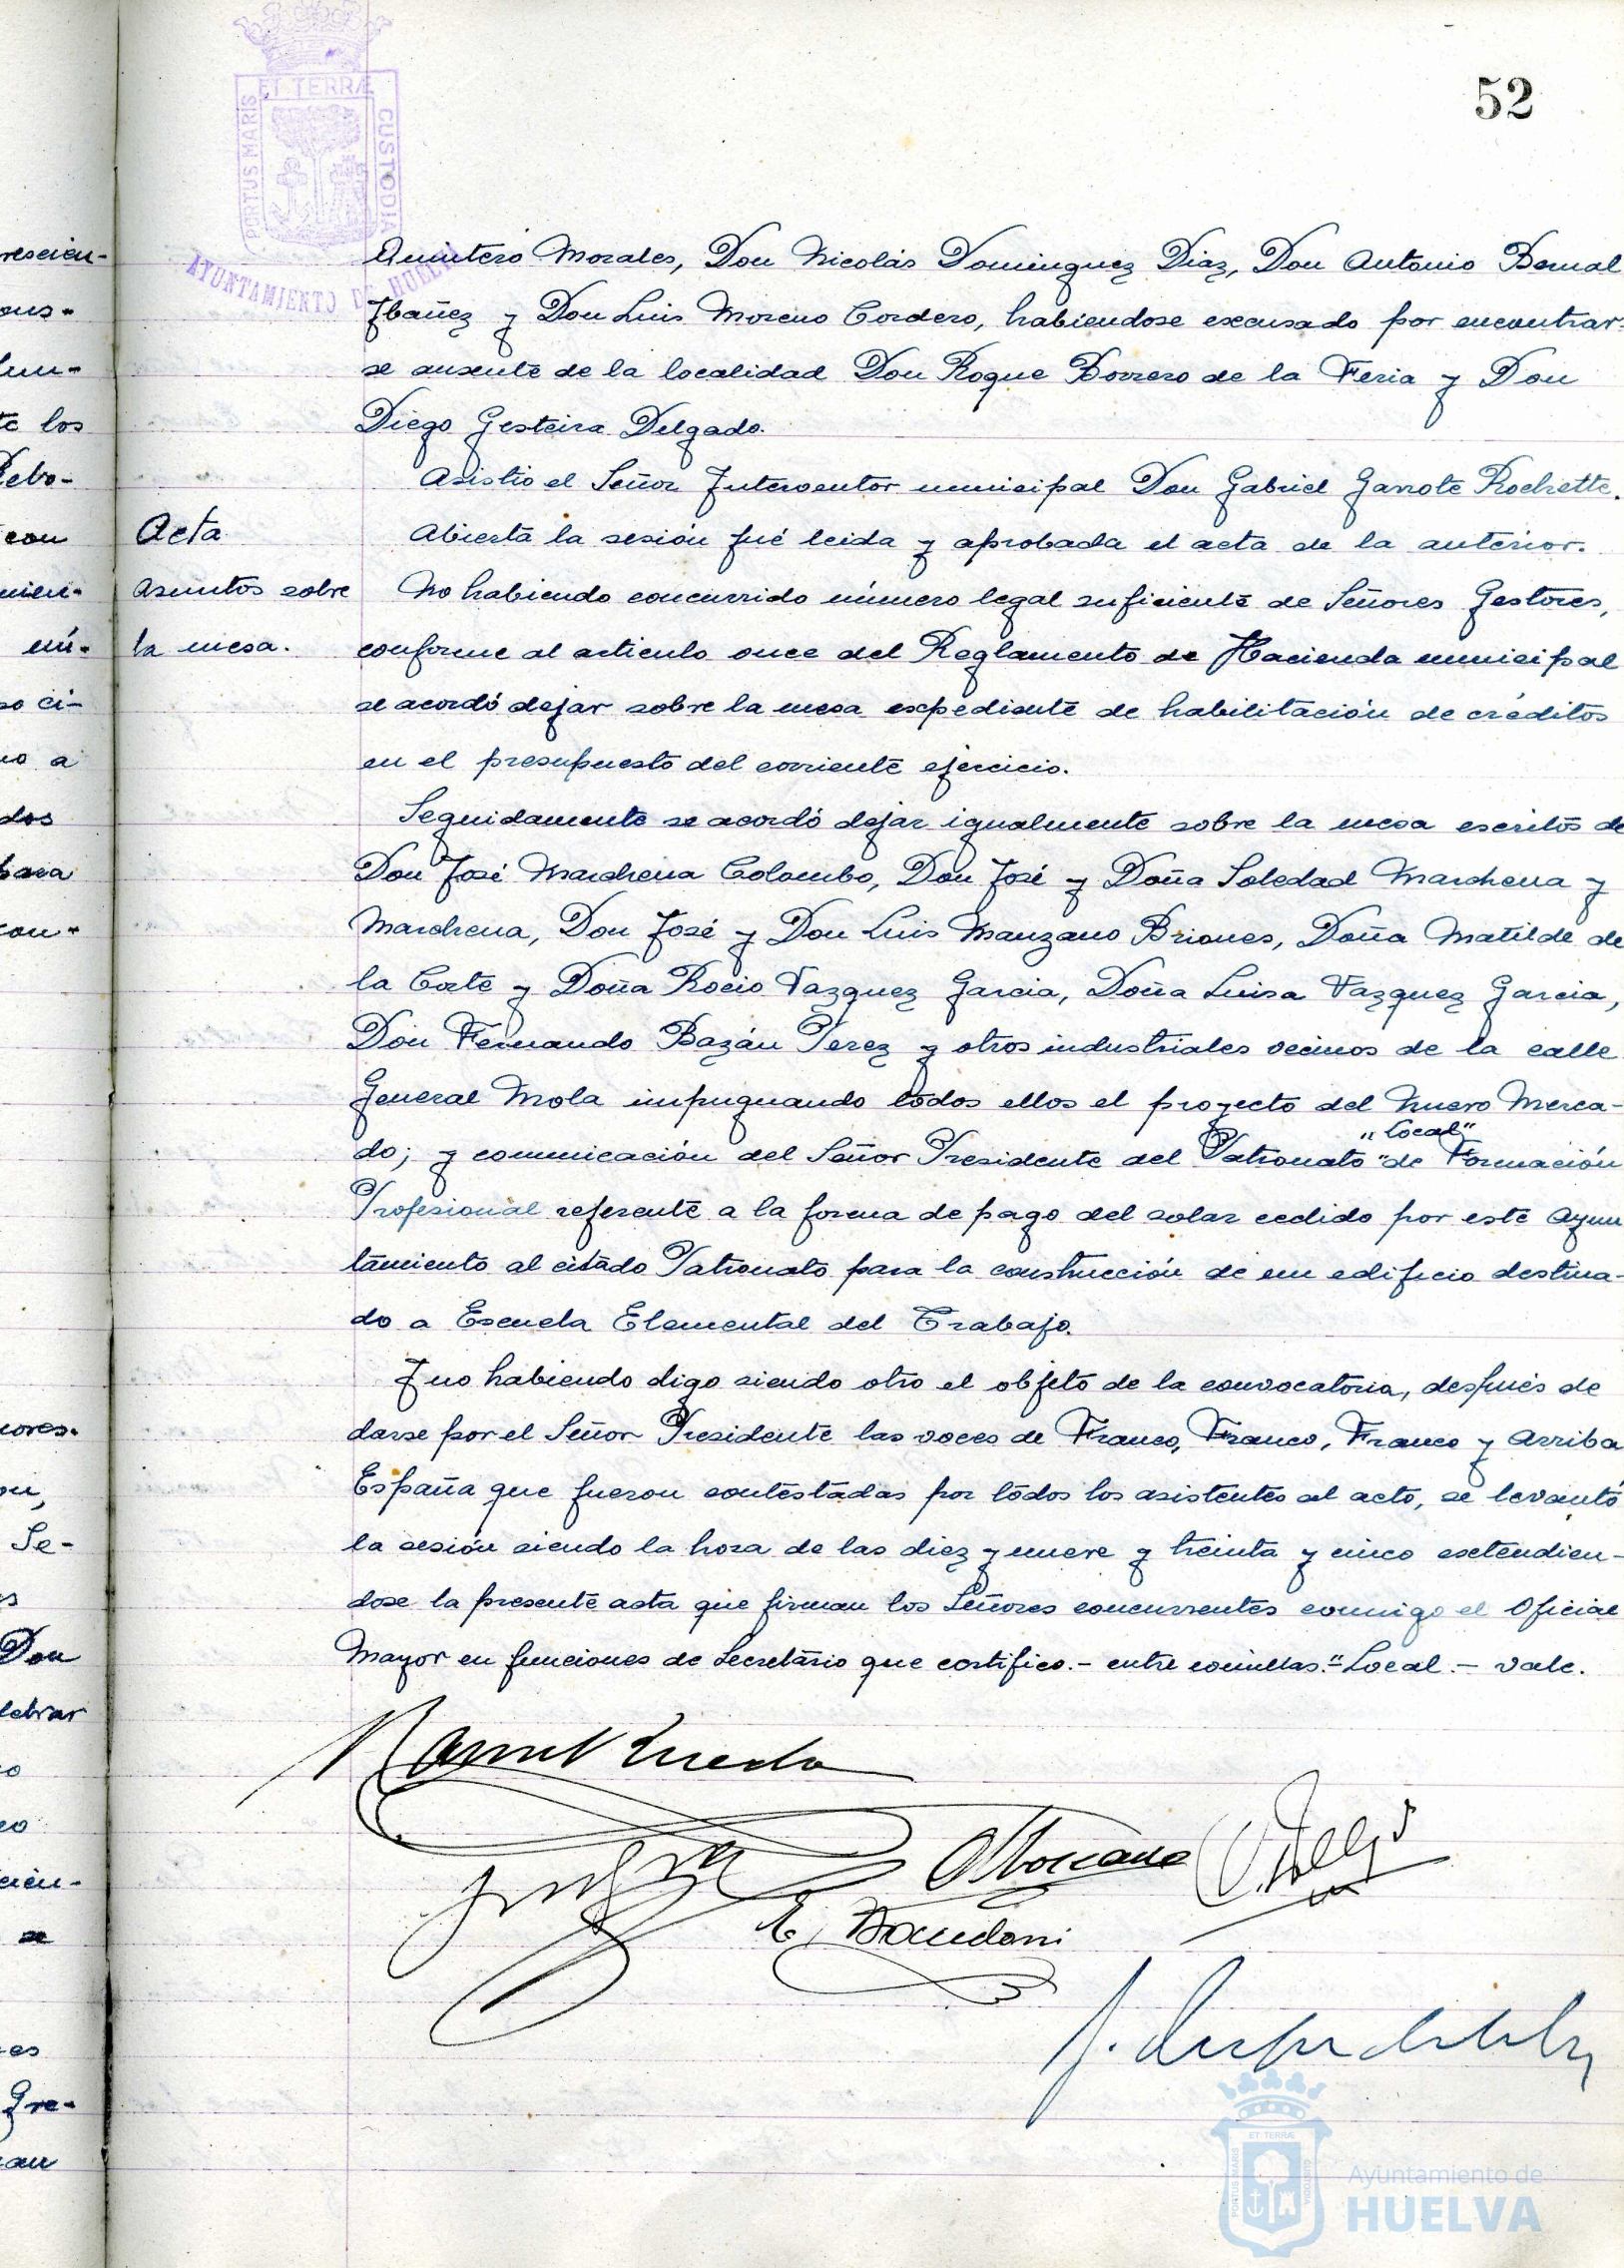 52
ET TERRÆ
PORTUS MARIS
CUSTODIA
AYUNTAMIENTO DE HUELVA
Quintero Morales, Don Nicolás Dominguez Diaz, Don Antonio Bernal
Ibañez y Don Luis Moreno Cordero, habiendose excusado por encontrar-
se ausente de la localidad Don Roque Borrero de la Feria y Don
Diego Gesteira Delgado.
Asistio el Señor Interventor municipal Don Gabriel Garrote Rochette.
Acta
Abierta la sesión fué leida y aprobada el acta de la anterior.
Asuntos sobre
la mesa.
No habiendo concurrido número legal suficiente de Señores Gestores,
conforme al articulo once del Reglamento de Hacienda municipal
se acordó dejar sobre la mesa expediente de habilitación de créditos
en el presupuesto del corriente ejercicio.
Seguidamente se acordó dejar igualmente sobre la mesa escritos de
Don José Marchena Colombo, Don José y Doña Soledad Marchena y
Marchena, Don José y Don Luis Manzano Briones, Doña Matilde de
la Corte y Doña Rocio Vazquez Garcia, Doña Luisa Vazquez Garcia,
Don Fernando Bazán Perez y otros industriales vecinos de la calle
General Mola impugnando todos ellos el proyecto del Nuevo Merca-
"Local"
do; y comunicación del Señor Presidente del Patronato "de Formación
Profesional referente a la forma de pago del solar cedido por este Ayun
tamiento al citado Patronato para la construcción de un edificio destina-
do a Escuela Elemental del Trabajo.
Y no habiendo digo siendo otro el objeto de la convocatoria, después de
darse por el Señor Presidente las voces de Franco, Franco, Franco y Arriba
España que fueron contestadas por todos los asistentes al acto, se levantó
la sesión siendo la hora de las diez y nueve y treinta y cinco extendien-
dose la presente acta que firman los Señores concurrentes conmigo el Oficial
Mayor en funciones de Secretario que certifico.- entre comillas."Local.- vale.
ET TERRÆ
PORTUS MARIS
CUSTODIA
Ayuntamiento de
HUELVA